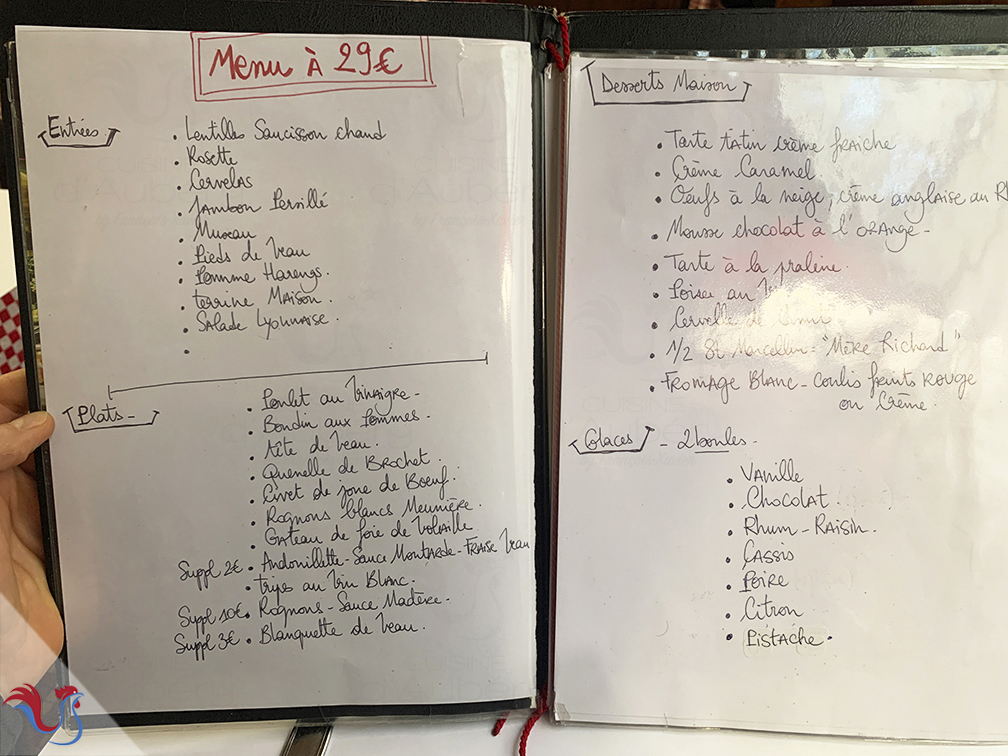 Menu À 29€
Entrées
• Lentilles Saucisson chaud
• Rosette
• Cervelas
• Jambon Persillé
• Museau
• Pieds de Veau
• Pomme Harengs.
• terrine Maison.
• Salade Lyonnaise.
•
Plats -
• Poulet au Vinaigre -
• Boudin aux Pommes.
• tête de Veau.
• Quenelle de Brochet.
• Civet de joue de Boeuf.
• Rognons blancs Meunière.
• Gateau de foie de Volaille
Suppl 2€ • Andouillette - Sauce Moutarde - Fraise Veau
• tripes au Vin Blanc.
Suppl 10€ • Rognons - Sauce Madère.
Suppl 3€ • Blanquette de Veau.
Desserts Maison
• Tarte tatin crème fraiche
• Crème Caramel
• Oeufs à la neige, crème anglaise au Rh
• Mousse chocolat à l'orange -
• Tarte à la praline.
• Poire au
• Cervelle de
• 1/2 St Marcellin "Mère Richard"
• Fromage Blanc - Coulis fruits rouge
ou Crème.
Glaces - 2 boules.
• Vanille
• Chocolat.
• Rhum - Raisin.
• Cassis
• Poire
• Citron
• Pistache.